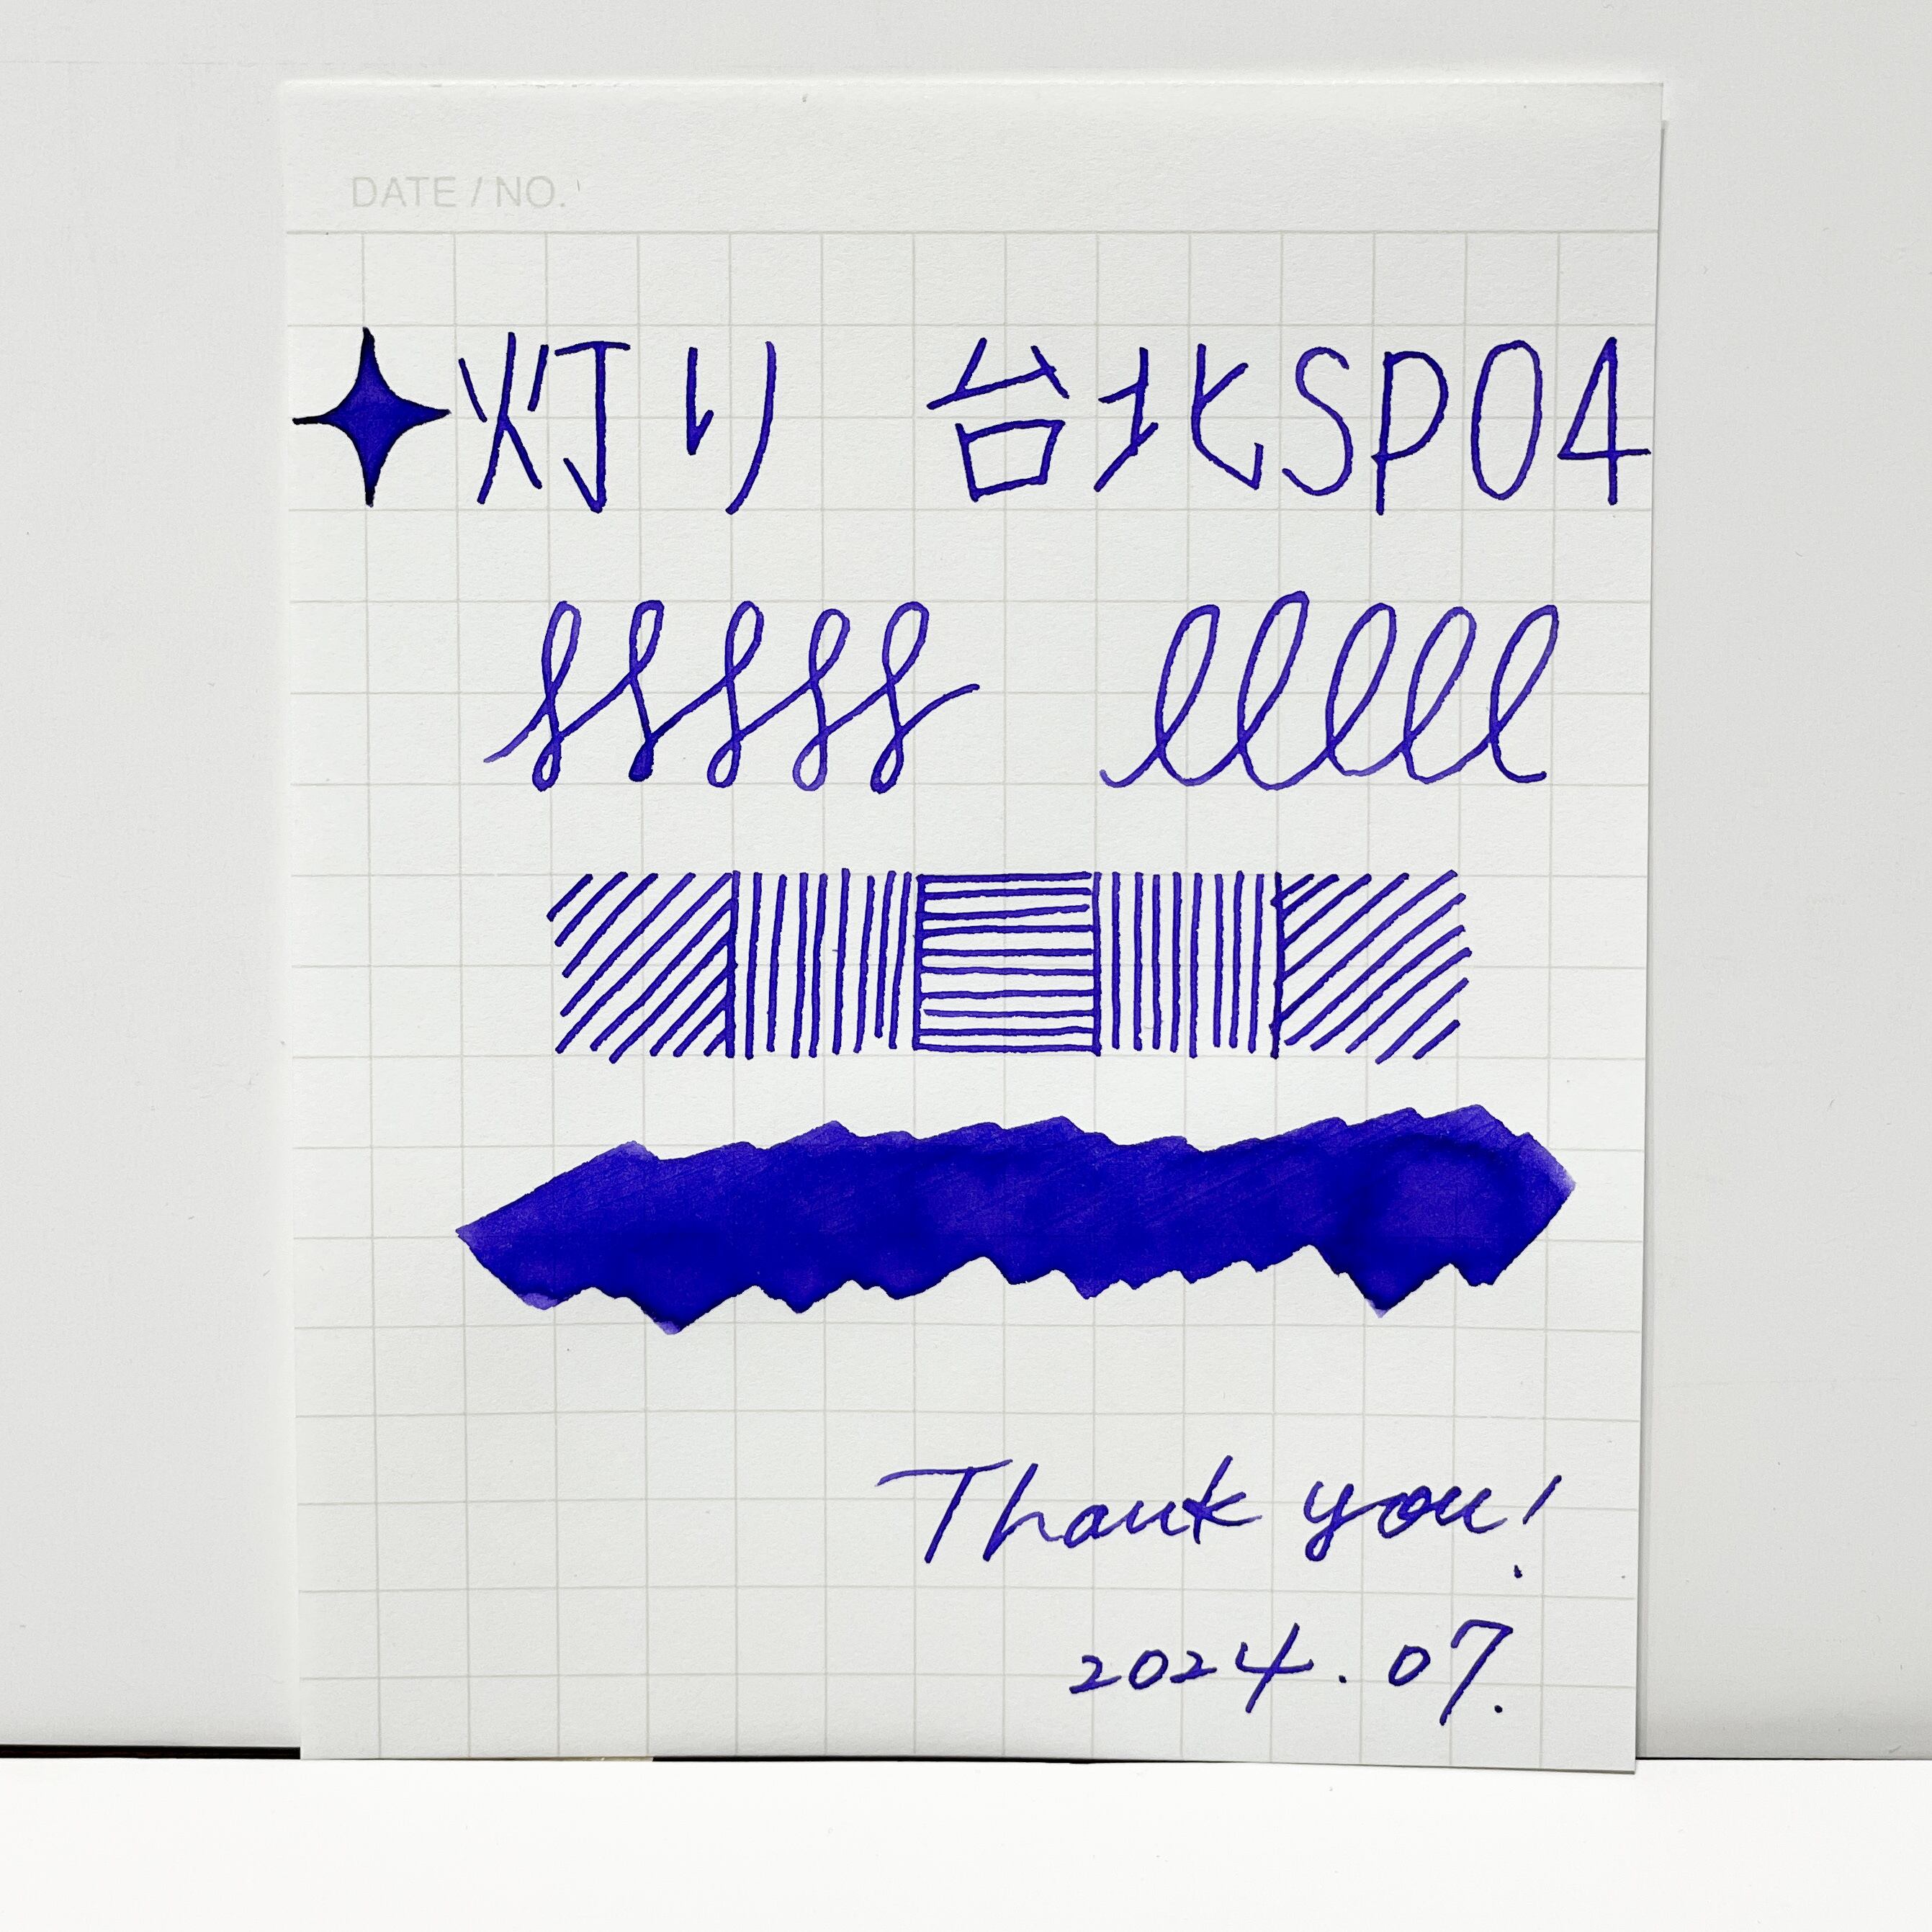 DATE / NO.
灯り 台北SP04
Thank you!
2024.07.